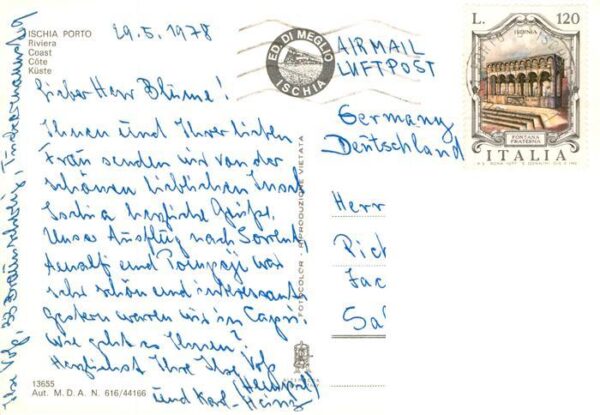 ISCHIA PORTO
Riviera
Coast
Côte
Küste
29.5.1978
Lieber Herr Blüme!
Ihnen und Ihrer lieben
Frau senden wir von der
schönen lieblichen Insel
Ischia herzliche Grüße.
Unser Ausflug nach Sorrent,
Amalfi und Pompeji war
sehr schön und interessant,
gestern waren wir in Capri.
Wie geht es Ihnen?
Herzlichst Ihre Ilse Volz
und Karl-Heinz
Ilse Volz, 33 Braunschweig,
13655
Aut. M. D. A. N. 616/44166
FOTOCOLOR - RIPRODUZIONE VIETATA
ED. DI MEGLIO
ISCHIA
AIRMAIL
LUFTPOST
Germany
Deutschland
Herr
L. 120
IRPINIA
FONTANA
FRATERNA
ITALIA